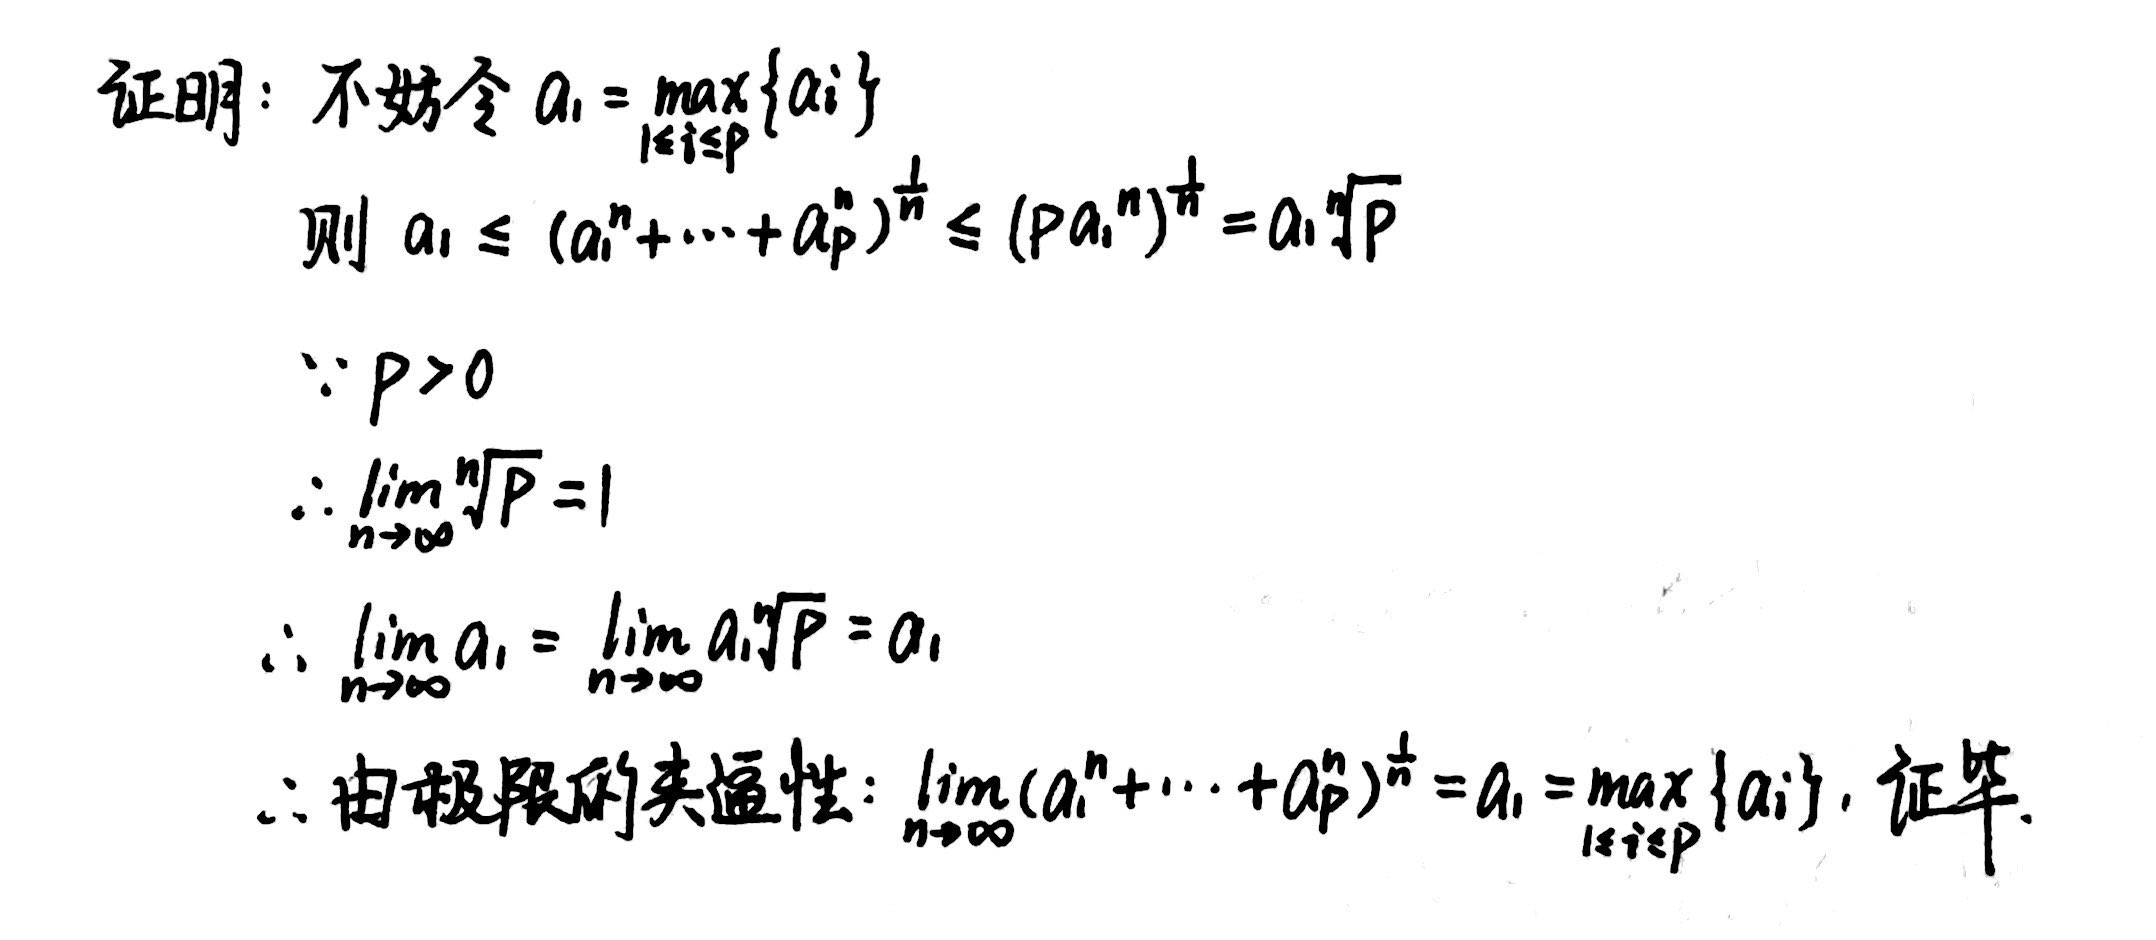 证明: 不妨令 a₁ = max_{1≤i≤p} {aᵢ}
则 a₁ ≤ (a₁ⁿ + ⋯ + a_pⁿ)^{1/n} ≤ (p a₁ⁿ)^{1/n} = a₁ ⁿ√p
∵ p > 0
∴ lim_{n→∞} ⁿ√p = 1
∴ lim_{n→∞} a₁ = lim_{n→∞} a₁ ⁿ√p = a₁
∴ 由极限的夹逼性: lim_{n→∞} (a₁ⁿ + ⋯ + a_pⁿ)^{1/n} = a₁ = max_{1≤i≤p} {aᵢ}. 证毕.